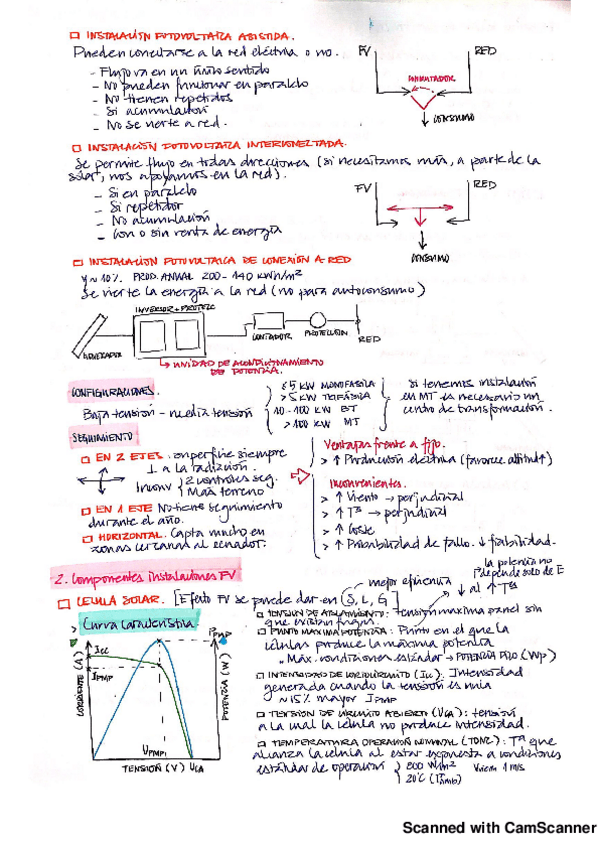 INSTALACIÓN FOTOVOLTAICA ASISTIDA.
Pueden conectarse a la red eléctrica o no.
- Flujo va en un único sentido
- No pueden funcionar en paralelo
- No tienen repetidos
- Si acumulación
- No se vierte a red.
FV
RED
CONMUTADOR
CONSUMO
INSTALACIÓN FOTOVOLTAICA INTERCONECTADA.
Se permite flujo en todas direcciones (si necesitamos más, a parte de la
solar, nos apoyamos en la red).
- Si en paralelo
- Si repetidor
- No acumulación
- Con o sin venta de energía
FV
RED
CONSUMO
INSTALACIÓN FOTOVOLTAICA DE CONEXIÓN A RED
η ~ 10%. PROD. ANUAL 200 - 140 kWh/m²
Se vierte la energía a la red (no para autoconsumo)
INVERSOR + PROTECC
GENERADOR
CONTADOR
PROTECCIÓN
RED
UNIDAD DE ACONDICIONAMIENTO
DE POTENCIA.
CONFIGURACIONES.
Baja tensión - media tensión
≤ 5 KW MONOFÁSICA
> 5 KW TRIFÁSICA
10 - 100 KW BT
> 100 KW MT
Si tenemos instalación
en MT es necesario un
centro de transformación.
SEGUIMIENTO
EN 2 EJES. superficie siempre
⊥ a la radiación.
Inconv { 2 controles seg.
Más terreno
EN 1 EJE No tiene seguimiento
durante el año.
HORIZONTAL. Capta mucho en
zonas cercanas al ecuador.
Ventajas frente a fijo.
> ↑ Producción eléctrica (favorece altitud↑)
Inconvenientes.
> ↑ Viento → perjudicial
> ↑ Tª → perjudicial
> ↑ Coste
> ↑ Probabilidad de fallo. ↓ fiabilidad.
2. Componentes instalaciones FV
la potencia no
depende solo de E
↓ al ↑ Tª
mejor eficiencia
CÉLULA SOLAR. [Efecto FV se puede dar en S, L, G]
> Curva característica
CORRIENTE (A)
Icc
IPMP
PPMP
POTENCIA (W)
UPMP
TENSIÓN (V)
UCA
TENSIÓN DE AISLAMIENTO: tensión máxima panel sin
que existan fugas.
PUNTO MÁXIMA POTENCIA: Punto en el que la
células produce la máxima potencia
Máx. condiciones estándar → POTENCIA PICO (Wp)
INTENSIDAD DE CORTOCIRCUITO (Icc): Intensidad
generada cuando la tensión es nula
~ 15% mayor IPMP
TENSIÓN DE CIRCUITO ABIERTO (UCA): tensión
a la cual la célula no produce intensidad.
TEMPERATURA OPERACIÓN NOMINAL (TONC): Tª que
alcanza la célula al estar expuesta a condiciones
estándar de operación { 800 W/m² Vvien 1 m/s
20°C (Tªamb)
Scanned with CamScanner